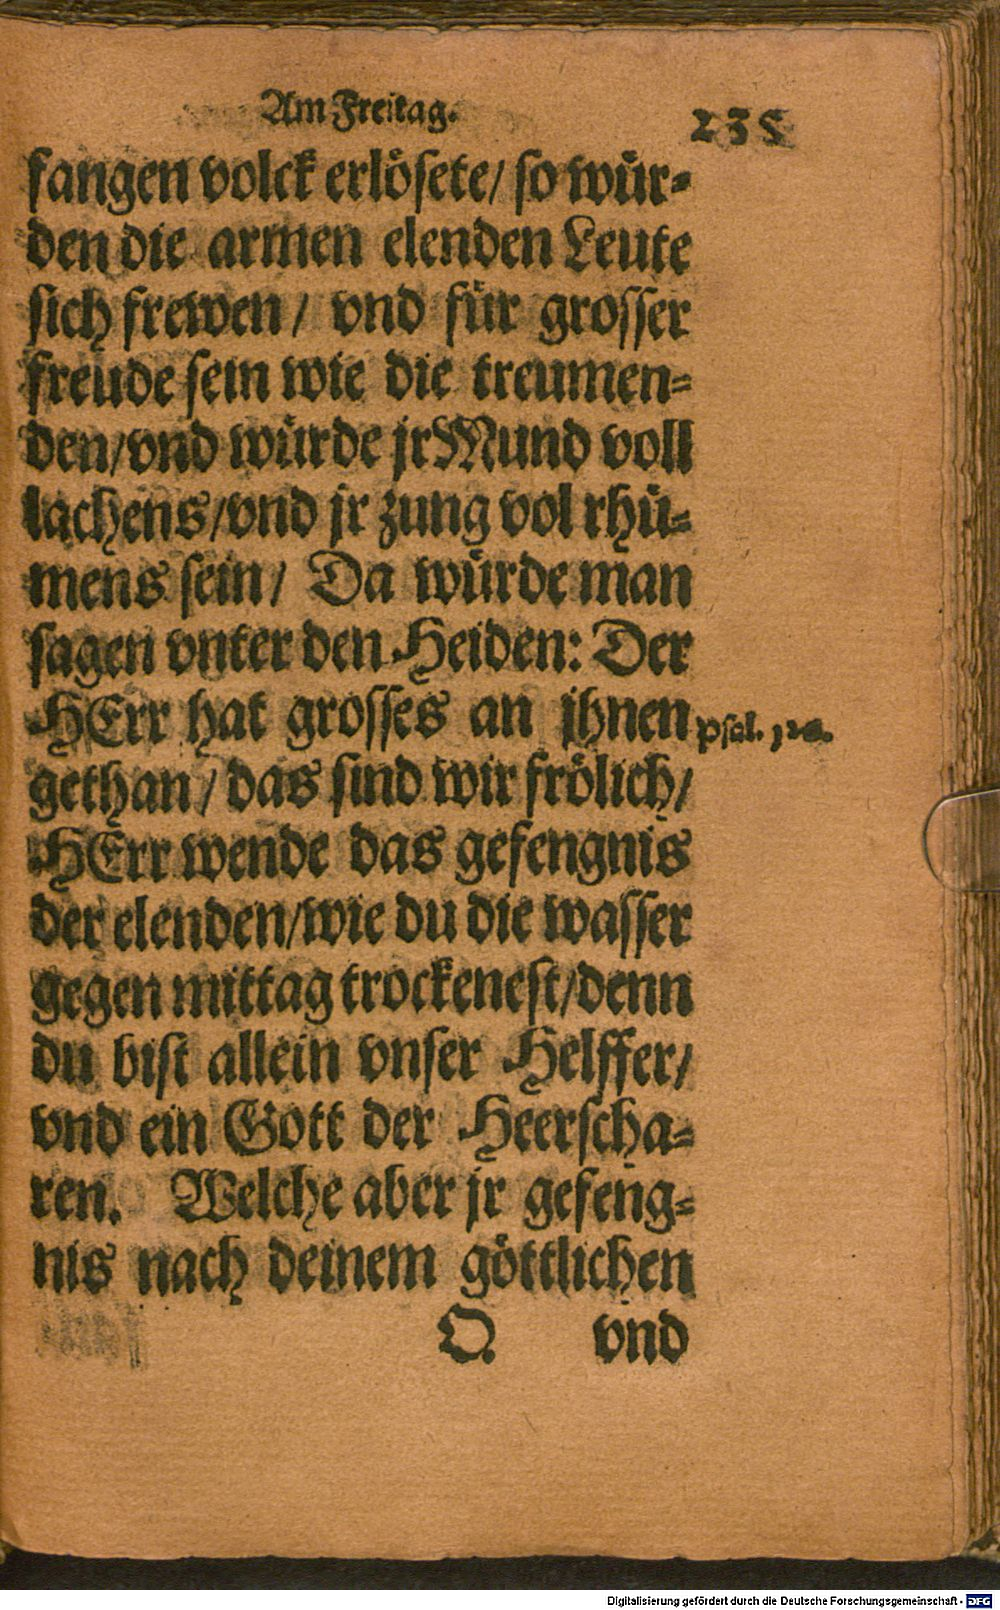 Am Freitag.
235
fangen volck erlösete/ so wür-
den die armen elenden Leute
sich frewen/ vnd für grosser
freude sein wie die treumen-
den/vnd würde jr Mund voll
lachens/vnd jr zung vol rhü-
mens sein/ Da würde man
sagen vnter den Heiden: Der
HErr hat grosses an jhnen
Psal. 126.
gethan/ das sind wir frölich/
HErr wende das gefengnis
der elenden/wie du die wasser
gegen mittag trockenest/denn
du bist allein vnser Helffer/
vnd ein Gott der Heerscha-
ren. Welche aber jr gefeng-
nis nach deinem göttlichen
O. vnd
Digitalisierung gefördert durch die Deutsche Forschungsgemeinschaft - DFG